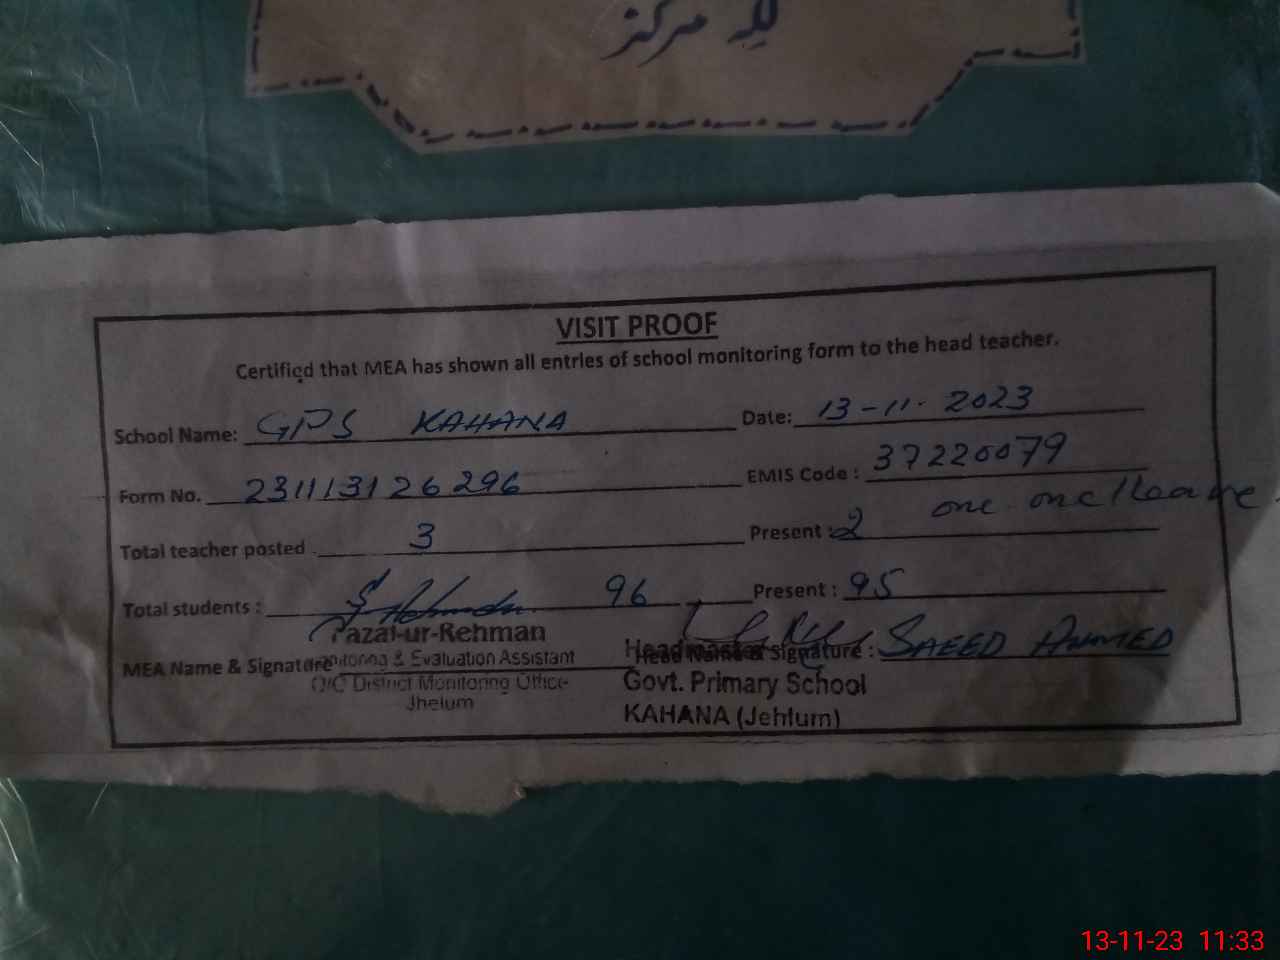 للہ مرکز
VISIT PROOF
Certified that MEA has shown all entries of school monitoring form to the head teacher.
School Name: GPS KAHANA Date: 13-11-2023
Form No. 231113126296 EMIS Code : 37220079
Total teacher posted 3 Present : 2 one on Leave
Total students : 96 Present : 95
MEA Name & Signature Head Name & Signature : SAEED AHMED
Fazal-ur-Rehman
Monitoring & Evaluation Assistant
O/O District Monitoring Office
Jhelum
Headmaster
Govt. Primary School
KAHANA (Jehlum)
13-11-23 11:33